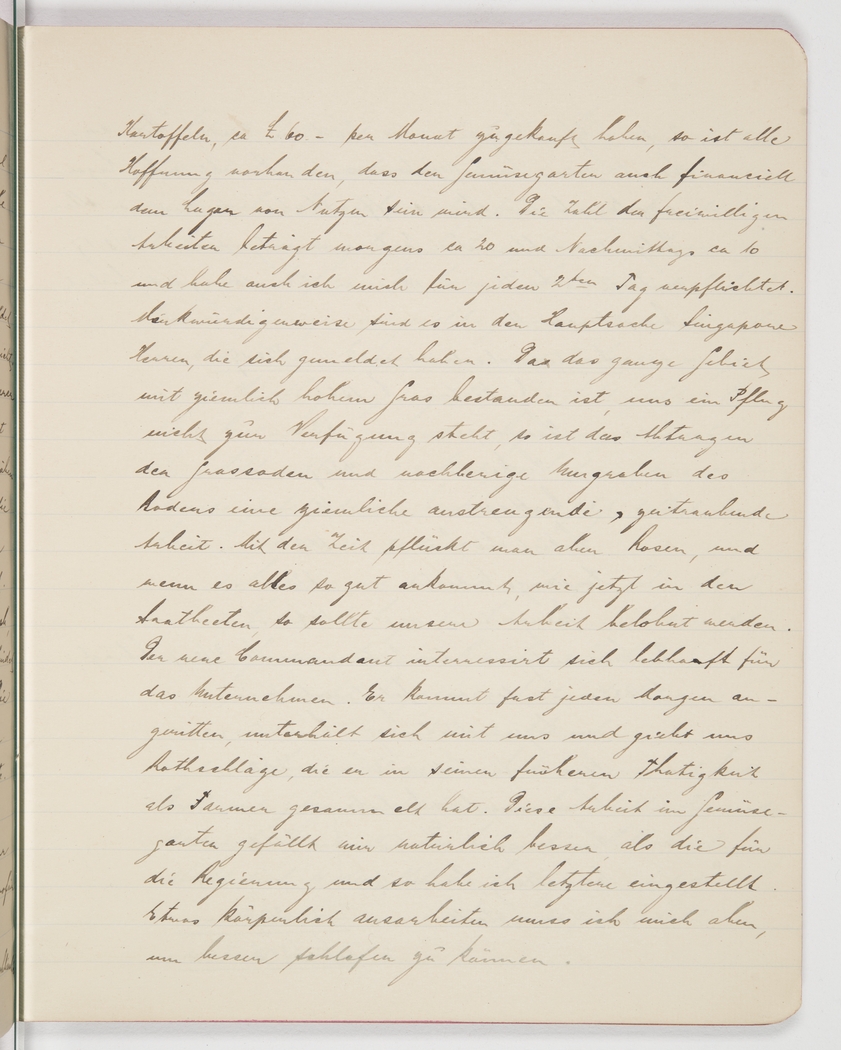 Kartoffeln, ca £ 60 - per Monat zugekauft haben, so ist alle
Hoffnung vorhanden, dass der Gemüsegarten auch financiell
dem Lager von Nutzen sein wird. Die Zahl der freiwilligen
Arbeiter beträgt morgens ca 20 und Nachmittags ca 10
und habe auch ich mich für jeden 2ten Tag verpflichtet.
Merkwürdigerweise sind es in der Hauptsache Singapore
Herren, die sich gemeldet haben. Da das ganze Gebiet
mit ziemlich hohem Gras bestanden ist, uns ein Pflug
nicht zur Verfügung steht, so ist das Abtragen
der Grassoden und nachherige Umgraben des
Bodens eine ziemliche anstrengende, zeitraubende
Arbeit. Mit der Zeit pflückt man aber Rosen, und
wenn es alles so gut ankommt, wie jetzt in den
Saatbeeten, so sollte unsere Arbeit belohnt werden.
Der neue Commandant interressirt sich lebhaft für
das Unternehmen. Er kommt fast jeden Morgen an-
geritten, unterhält sich mit uns und giebt uns
Rathschläge, die er in seiner früheren Thätigkeit
als Farmer gesammelt hat. Diese Arbeit im Gemüse-
garten gefällt mir natürlich besser, als die für
die Regierung und so habe ich letztere eingestellt.
Etwas körperlich ausarbeiten muss ich mich aber,
um besser schlafen zu können.